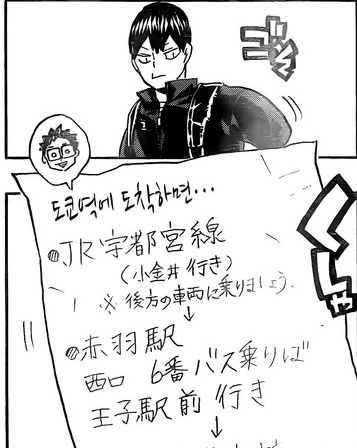 ゴソ
도쿄역에 도착하면...
JR宇都宮線
(小金井行き)
※後方の車両に乗りましょう。
↓
赤羽駅
西口 6番バス乗りば
王子駅前 行き
↓
くしゃ